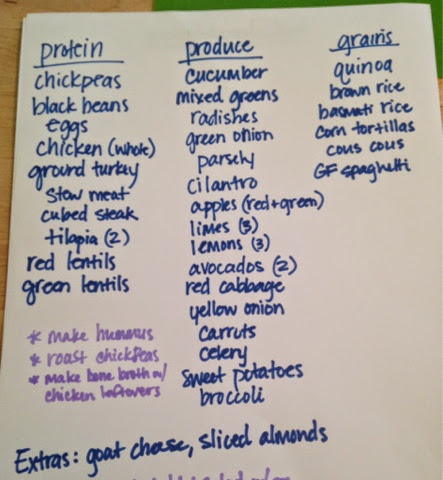 protein
chickpeas
black beans
eggs
chicken (whole)
ground turkey
stew meat
cubed steak
tilapia (2)
red lentils
green lentils
* make hummus
* roast chickpeas
* make bone broth w/
chicken leftovers
produce
cucumber
mixed greens
radishes
green onion
parsely
cilantro
apples (red+green)
limes (3)
lemons (3)
avocados (2)
red cabbage
yellow onion
carrots
celery
sweet potatoes
broccoli
grains
quinoa
brown rice
basmati rice
corn tortillas
cous cous
GF spaghetti
Extras: goat cheese, sliced almonds